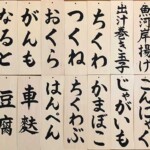 魚河岸揚げ
出汁巻き玉子
ちくわ
つくね
おくら
がんも
なると
こんにゃく
じゃがいも
かまぼこ
ちくわぶ
はんぺん
車麩
豆腐